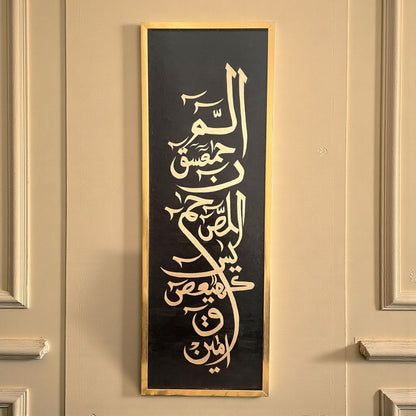 الٓمّٓ
حمٓعسٓقٓ
ن
حمٓ
المٓصّٓ
يسٓ
كٓهيعٓصٓ
قٓ
امين